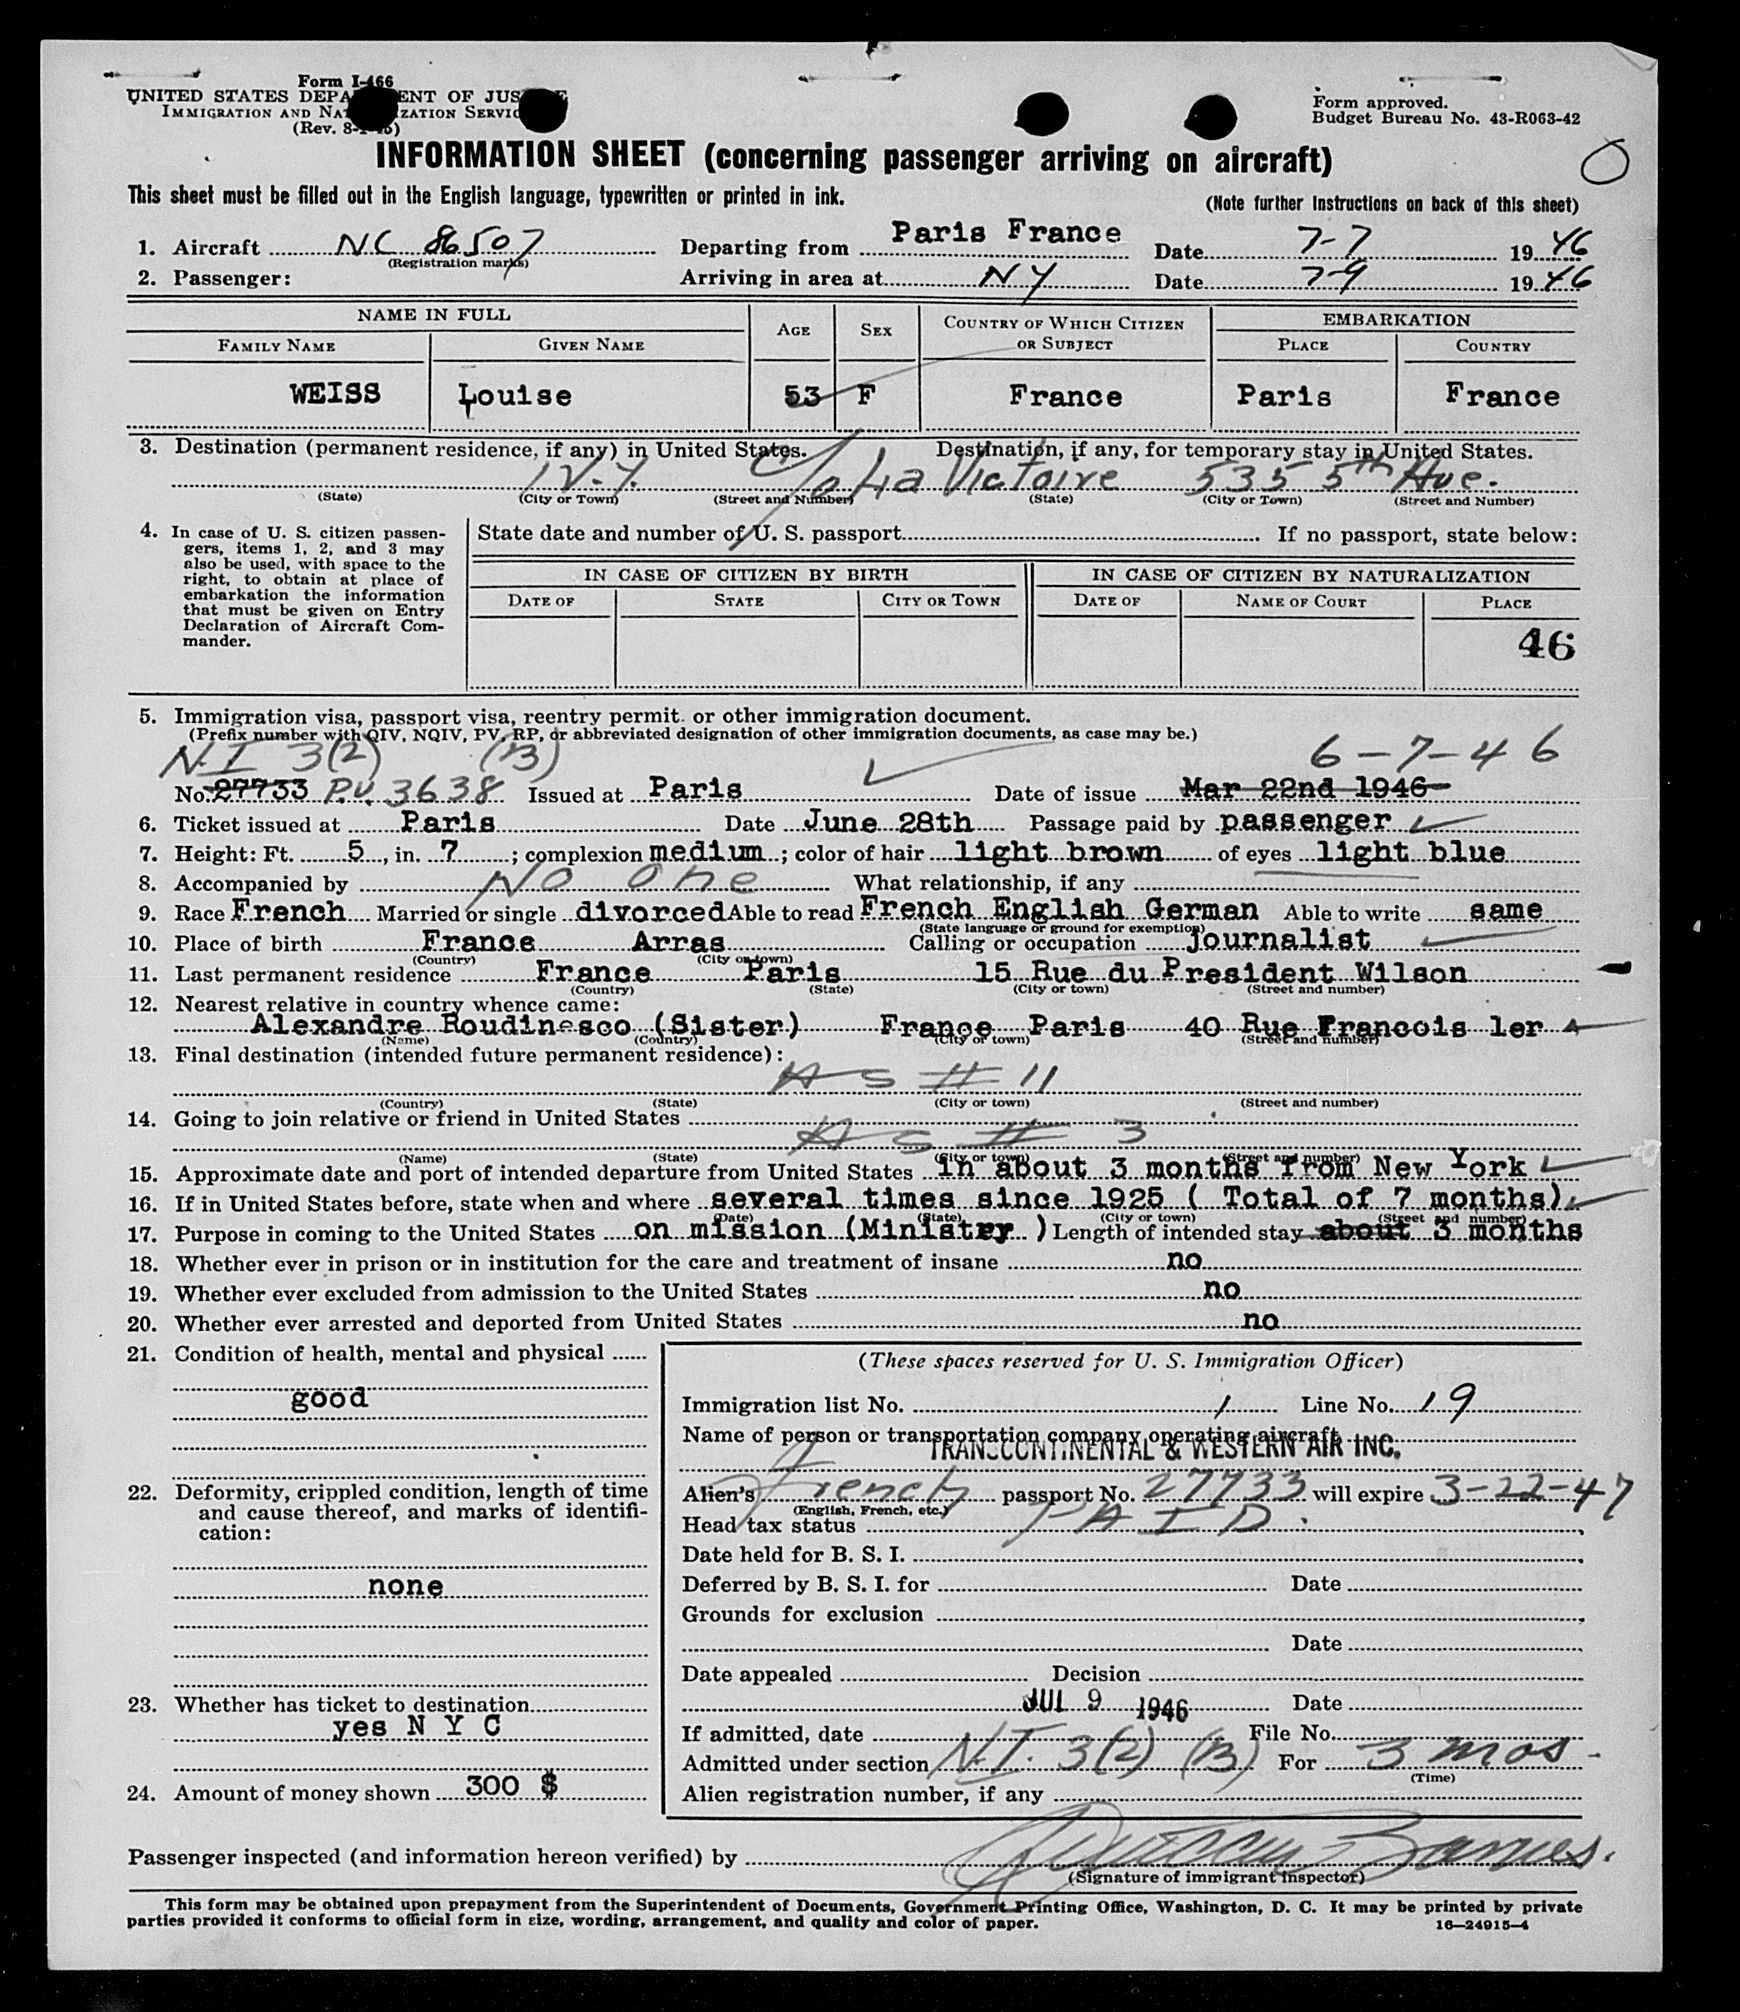 Form I-466
UNITED STATES DEPARTMENT OF JUSTICE
IMMIGRATION AND NATURALIZATION SERVICE
(Rev. 8-
Form approved.
Budget Bureau No. 43-R063-42
INFORMATION SHEET (concerning passenger arriving on aircraft)
This sheet must be filled out in the English language, typewritten or printed in ink.
(Note further instructions on back of this sheet)
1. Aircraft NC 86507 Departing from Paris France Date 7-7 1946
(Registration marks)
2. Passenger: Arriving in area at NY Date 7-9 1946
NAME IN FULL AGE SEX COUNTRY OF WHICH CITIZEN OR SUBJECT EMBARKATION
FAMILY NAME GIVEN NAME PLACE COUNTRY
WEISS Louise 53 F France Paris France
3. Destination (permanent residence, if any) in United States. Destination, if any, for temporary stay in United States.
N.Y. C/o La Victoire 535 5th Ave.
(State) (City or Town) (Street and Number) (State) (City or Town) (Street and Number)
4. In case of U. S. citizen passen-
gers, items 1, 2, and 3 may
also be used, with space to the
right, to obtain at place of
embarkation the information
that must be given on Entry
Declaration of Aircraft Com-
mander.
State date and number of U. S. passport If no passport, state below:
IN CASE OF CITIZEN BY BIRTH IN CASE OF CITIZEN BY NATURALIZATION
DATE OF STATE CITY OR TOWN DATE OF NAME OF COURT PLACE
46
5. Immigration visa, passport visa, reentry permit or other immigration document.
(Prefix number with QIV, NQIV, PV, RP, or abbreviated designation of other immigration documents, as case may be.)
N.I 3(2) (B) 6-7-46
No. 27733 P.V. 3638 Issued at Paris Date of issue Mar 22nd 1946
6. Ticket issued at Paris Date June 28th Passage paid by passenger
7. Height: Ft. 5, in. 7; complexion medium; color of hair light brown of eyes light blue
8. Accompanied by No one What relationship, if any
9. Race French Married or single divorced Able to read French English German Able to write same
(State language or ground for exemption)
10. Place of birth France Arras Calling or occupation journalist
(Country) (City or town)
11. Last permanent residence France Paris 15 Rue du President Wilson
(Country) (State) (City or town) (Street and number)
12. Nearest relative in country whence came:
Alexandre Roudinesco (Sister) France Paris 40 Rue Francois 1er
(Name) (Country) (City or town) (Street and number)
13. Final destination (intended future permanent residence):
AS # 11
(Country) (State) (City or town) (Street and number)
14. Going to join relative or friend in United States
AS # 3
(Name) (State) (City or town) (Street and number)
15. Approximate date and port of intended departure from United States in about 3 months from New York
16. If in United States before, state when and where several times since 1925 ( Total of 7 months)
(Date) (State) (City or town) (Street and number)
17. Purpose in coming to the United States on mission (Ministry ) Length of intended stay about 3 months
18. Whether ever in prison or in institution for the care and treatment of insane no
19. Whether ever excluded from admission to the United States no
20. Whether ever arrested and deported from United States no
21. Condition of health, mental and physical
good
22. Deformity, crippled condition, length of time
and cause thereof, and marks of identifi-
cation:
none
23. Whether has ticket to destination
yes N Y C
24. Amount of money shown 300 $
(These spaces reserved for U. S. Immigration Officer)
Immigration list No. 1 Line No. 19
Name of person or transportation company operating aircraft
TRANSCONTINENTAL & WESTERN AIR INC.
Alien's French passport No. 27733 will expire 3-22-47
(English, French, etc.)
Head tax status PAID
Date held for B. S. I.
Deferred by B. S. I. for Date
Grounds for exclusion
Date
Date appealed Decision
JUL 9 1946 Date
If admitted, date File No.
Admitted under section N.I. 3(2) (B) For 3 mos-
(Time)
Alien registration number, if any
Passenger inspected (and information hereon verified) by
(Signature of immigrant inspector)
This form may be obtained upon prepayment from the Superintendent of Documents, Government Printing Office, Washington, D. C. It may be printed by private
parties provided it conforms to official form in size, wording, arrangement, and quality and color of paper.
16—24915-4